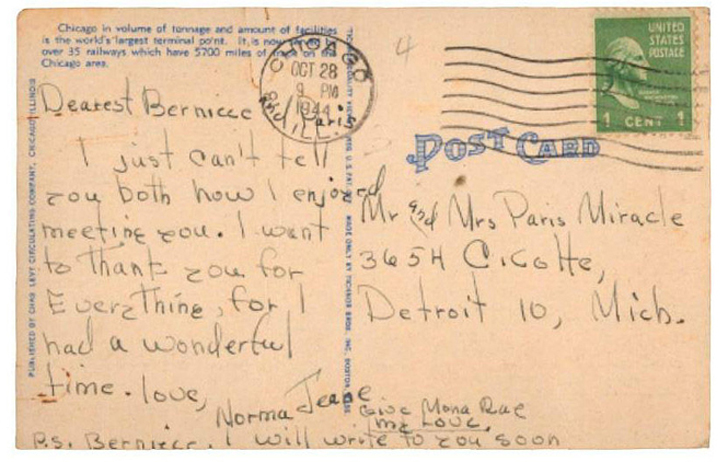 Chicago in volume of tonnage and amount of facilities
is the world's largest terminal point. It is now served by
over 35 railways which have 5700 miles of track in the
Chicago area.
CHICAGO
OCT 28
9 PM
1944
ILL.
UNITED
STATES
POSTAGE
1 CENT 1
4
POST CARD
PUBLISHED BY CHAS. LEVY CIRCULATING COMPANY, CHICAGO, ILLINOIS
MADE ONLY BY TICHNOR BROS. INC. BOSTON, MASS.
Dearest Berniece
and Paris
I just can't tell
you both how I enjoyed
meeting you. I want
to thank you for
Everything, for I
had a wonderful
time. love,
Norma Jeane
Give Mona Rae
my Love.
P.S. Berniece, I will write to you soon
Mr and Mrs Paris Miracle
3654 Cicotte,
Detroit 10, Mich.